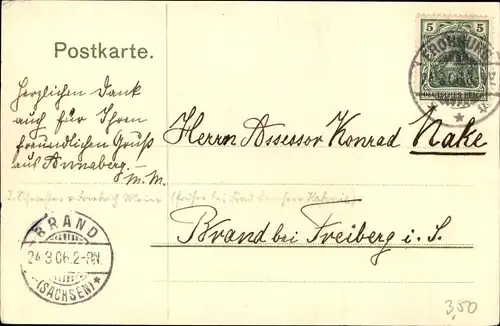 Postkarte.
5
FROHBURG
DEUTSCHES REICH
Herzlichen Dank
auch für Ihren
freundlichen Gruß
aus Annaberg. –
M. M.
Herrn Assessor Konrad Nake
Brand bei Freiberg i. S.
BRAND
24.3.06.2-3N.
* (SACHSEN) *
3,50